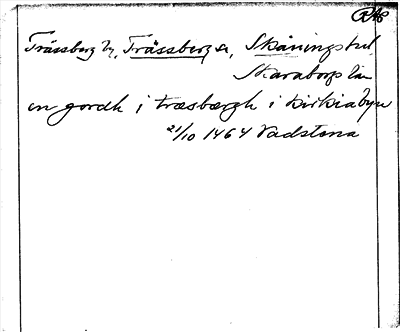 Trässberg by, Trässberg sn, Skånings hd
Skaraborgs län
en gordh i træsbærgh i kirkiabyn
21/10 1464 Vadstena